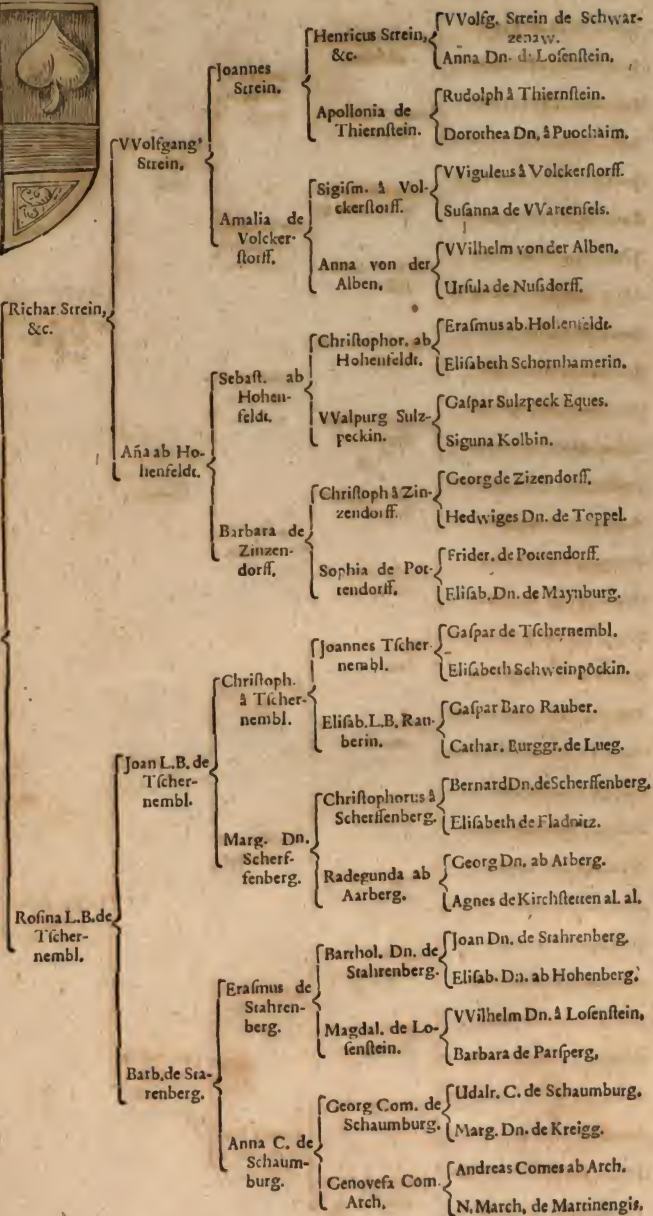 Richar Strein,
&c.
Roſina L.B.de
Tſcher-
nembl.
VVolfgang'
Strein,
Aña ab Ho-
henfeldt.
Joan L.B. de
Tſcher-
nembl.
Barb.de Sta-
renberg.
Joannes
Strein.
Amalia de
Volcker-
ſtorff.
Sebaſt. ab
Hohen-
feldt.
Barbara de
Zinzen-
dorff,
Chriſtoph.
à Tſcher-
nembl.
Marg. Dn.
Scherf-
fenberg.
Eraſmus de
Stahren-
berg.
Anna C. de
Schaum-
burg.
Henricus Strein,
&c.
Apollonia de
Thiernſtein.
Sigiſm. à Vol-
ckerſtorff.
Anna von der
Alben,
Chriſtophor. ab
Hohenfeldt.
VValpurg Sulz-
peckin.
Chriſtoph à Zin-
zendorff.
Sophia de Pot-
tendorff,
Joannes Tſcher-
nembl.
Eliſab.L.B. Rau-
berin.
Chriſtophorus à
Scherffenberg.
Radegunda ab
Aarberg.
Barthol. Dn. de
Stahrenberg.
Magdal. de Lo-
ſenſtein.
Georg Com. de
Schaumburg.
Genovefa Com.
Arch,
VVolfg. Strein de Schwar-
zenaw.
Anna Dn. d: Loſenſtein.
Rudolph à Thiernſtein.
Dorothea Dn, à Puochaim.
VViguleus à Volckerſtorff.
Suſanna de VVartenfels.
VVilhelm von der Alben,
Urſula de Nuſsdorff.
Eraſmus ab. Hohenfeldt.
Eliſabeth Schornhamerin.
Gaſpar Sulzpeck Eques.
Siguna Kolbin.
Georg de Zizendorff,
Hedwiges Dn. de Toppel.
Frider. de Pottendorff.
Eliſab. Dn. de Maynburg.
Gaſpar de Tſchernembl.
Eliſabeth Schweinpöckin.
Gaſpar Baro Rauber.
Cathar. Burggr. de Lueg.
Bernard Dn. de Scherffenberg,
Eliſabeth de Fladnitz.
Georg Dn. ab Arberg.
Agnes de Kirchſtetten al. al.
Joan Dn. de Stahrenberg.
Eliſab. Dn. ab Hohenberg.
VVilhelm Dn. à Loſenſtein,
Barbara de Parſperg,
Udalr. C. de Schaumburg.
Marg. Dn. de Kreigg.
Andreas Comes ab Arch.
N. March. de Martinengis.